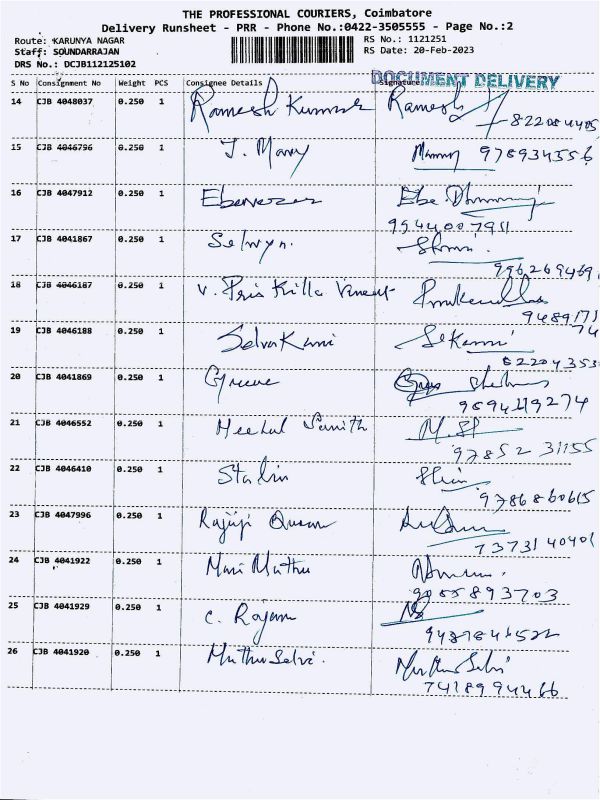 THE PROFESSIONAL COURIERS, Coimbatore
Delivery Runsheet - PRR - Phone No.:0422-3505555 - Page No.:2
Route: KARUNYA NAGAR
RS No.: 1121251
Staff: SOUNDARRAJAN
RS Date: 20-Feb-2023
DRS No.: DCJB112125102
S No Consignment No Weight PCS Consignee Details Signature
DOCUMENT DELIVERY
14 CJB 4048037 0.250 1 Ramesh Kumar Ramesh
15 CJB 4046796 0.250 1 J. Mary
978934556
16 CJB 4047912 0.250 1 Ebenezer Ebe
9544007951
17 CJB 4041867 0.250 1 Selwyn.
996269469
18 CJB 4046187 0.250 1 V. Priskilla Vincent
9489171
74
19 CJB 4046188 0.250 1 SelvaKani
822043530
20 CJB 4041869 0.250 1
9894419274
21 CJB 4046552 0.250 1
97852 31155
22 CJB 4046410 0.250 1 Stalin
9786860615
23 CJB 4047996 0.250 1
7373140401
24 CJB 4041922 0.250 1 Mari Muthu
9055893703
25 CJB 4041929 0.250 1 C. Rajam
26 CJB 4041920 0.250 1 Muthu Selvi. Muthu Selvi
7418994466